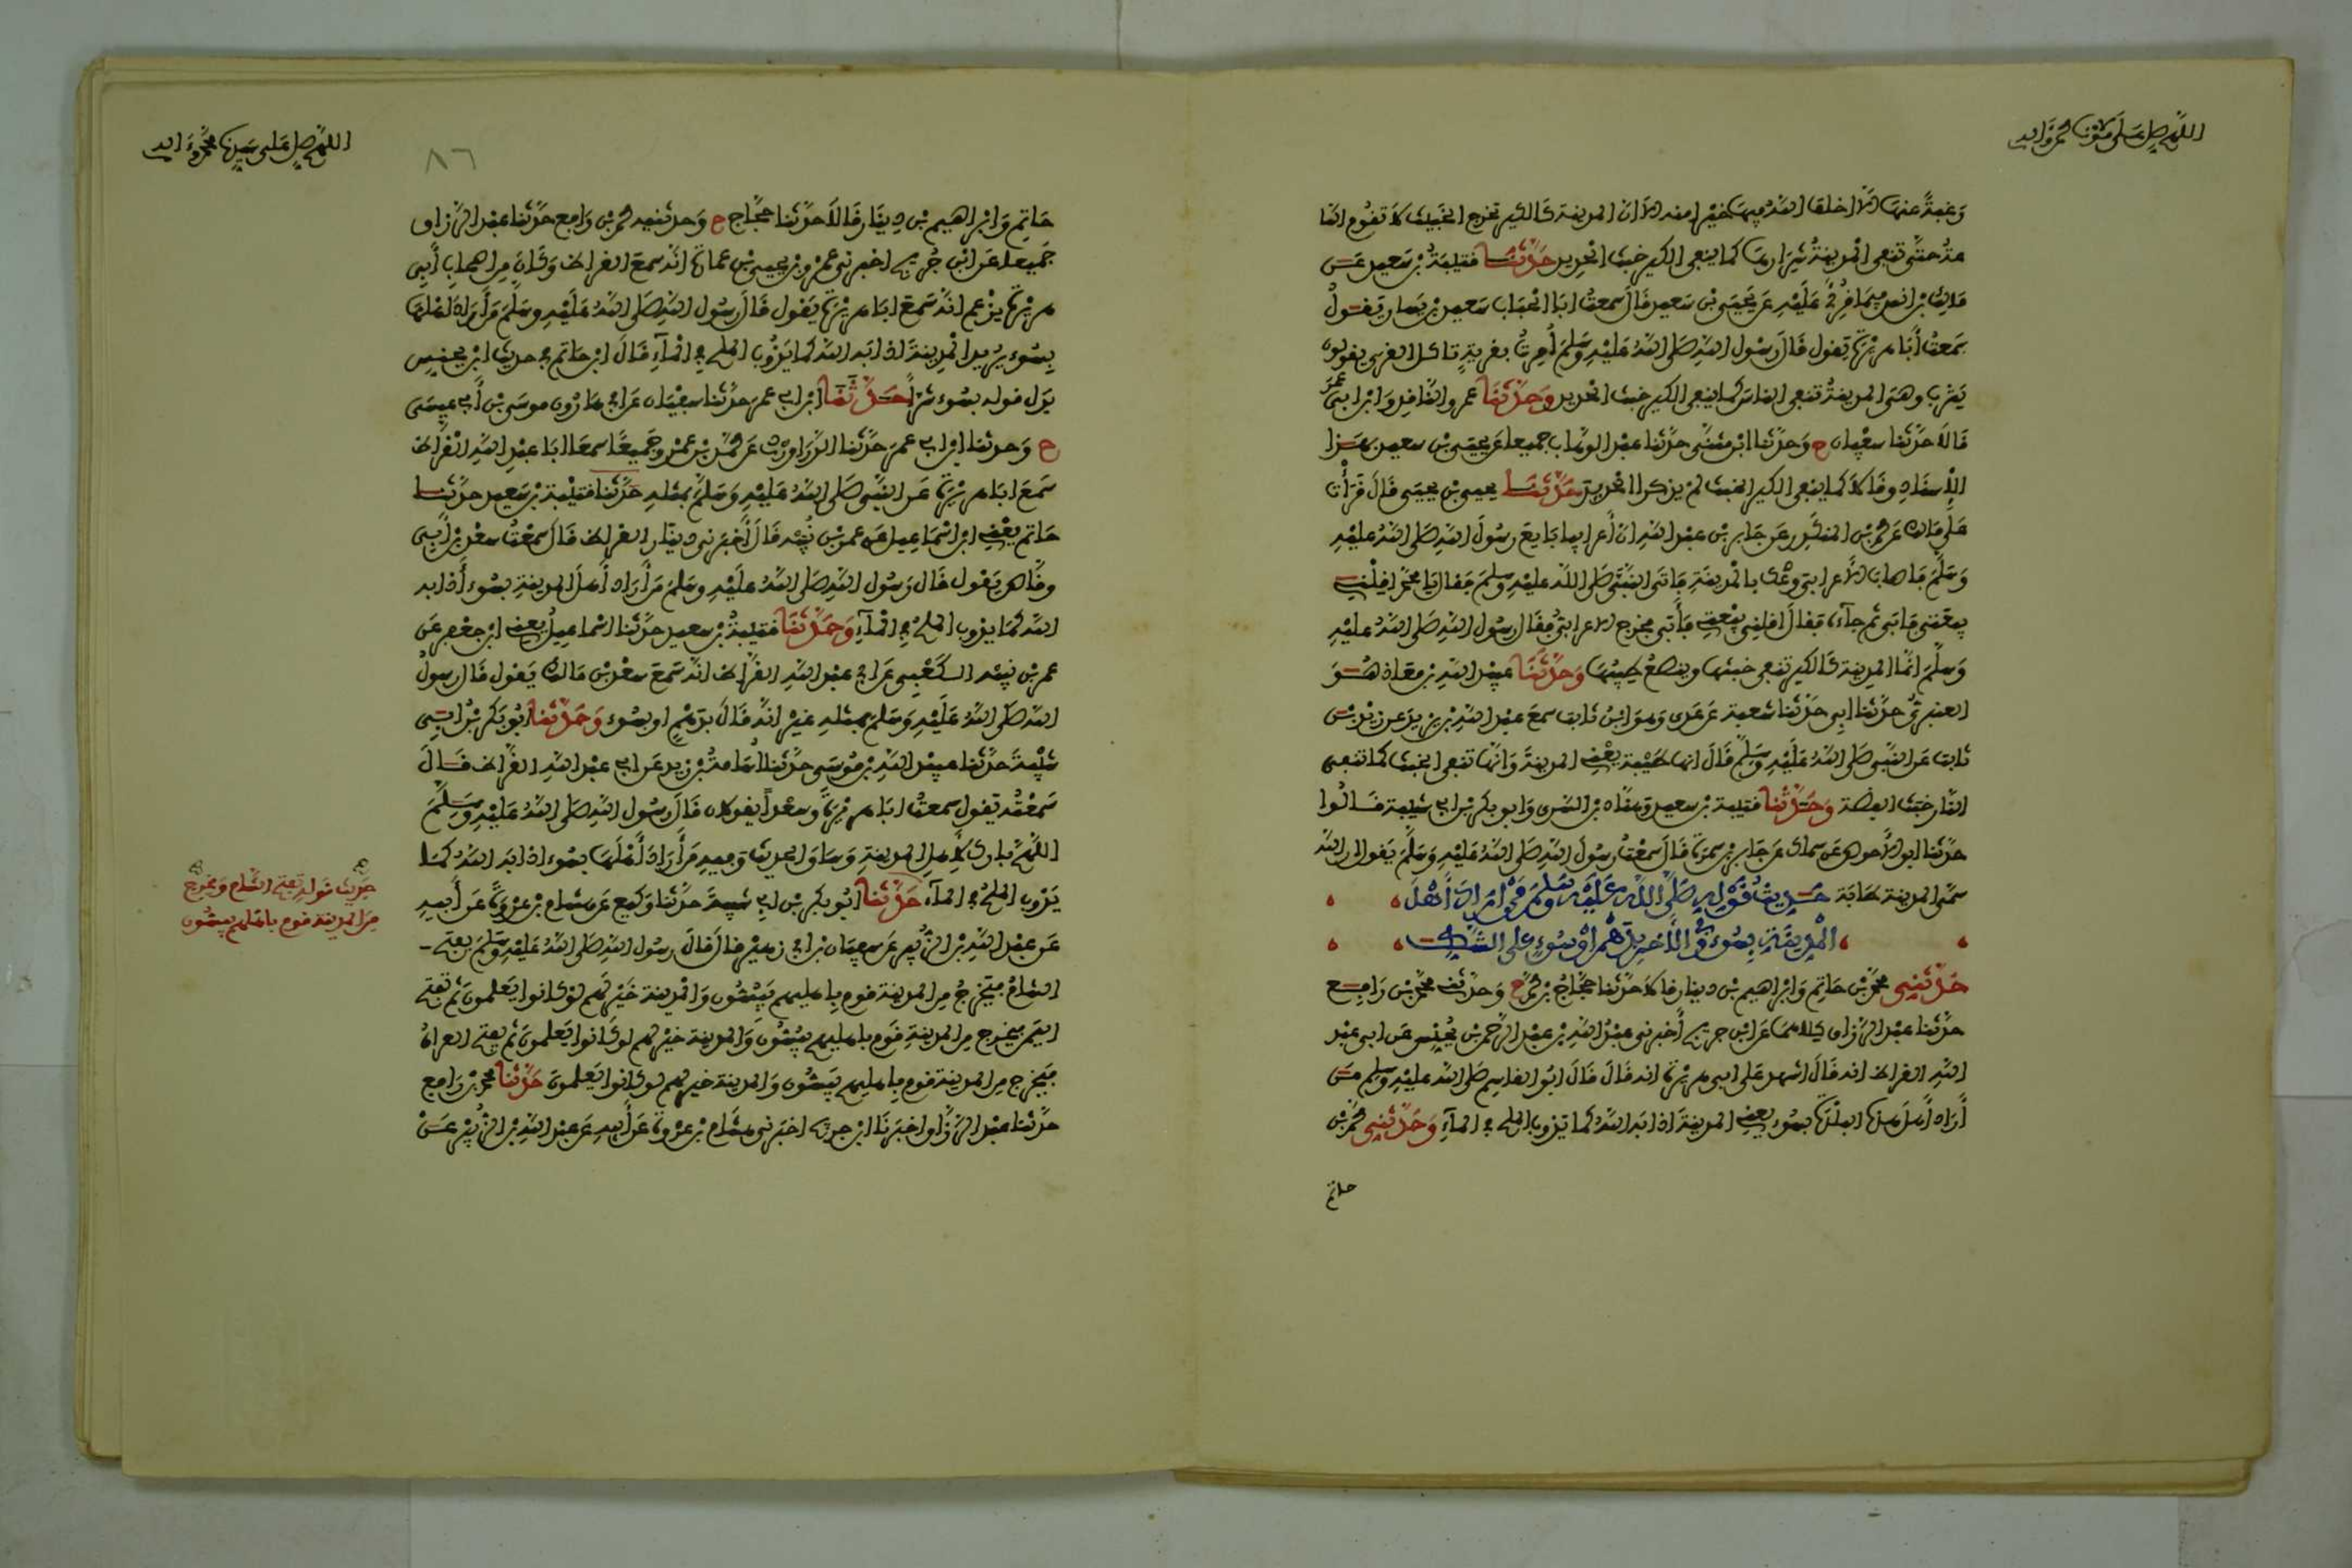 اللهم صل على مولانا محمد وآله
رغبة عنها إلا أخلف الله فيها خيرا منه ألا إن المدينة كالكير تخرج الخبيث لا تقوم السا
عة حتى تنفي المدينة شرارها كما ينفي الكير خبث الحديد حدثنا قتيبة بن سعيد عن
مالك بن أنس فيما قرئ عليه عن يحيى بن سعيد قال سمعت أبا الحباب سعيد بن يسار يقول
سمعت أبا هريرة يقول قال رسول الله صلى الله عليه وسلم أمرت بقرية تأكل القرى يقولون
يثرب وهي المدينة تنفي الناس كما ينفي الكير خبث الحديد وحدثنا عمرو الناقد وابن أبي عمر
قالا حدثنا سفيان ح وحدثنا ابن مثنى حدثنا عبد الوهاب جميعا عن يحيى بن سعيد بهذا
الإسناد وقالا كما ينفي الكير الخبث لم يذكرا الحديد حدثنا يحيى بن يحيى قال قرأت
على مالك عن محمد بن المنكدر عن جابر بن عبد الله أن أعرابيا بايع رسول الله صلى الله عليه
وسلم فأصاب الأعرابي وعك بالمدينة فأتى النبي صلى الله عليه وسلم فقال يا محمد أقلني
بيعتي فأبى ثم جاءه فقال أقلني بيعتي فأبى فخرج الأعرابي فقال رسول الله صلى الله عليه
وسلم إنما المدينة كالكير تنفي خبثها وينصع طيبها وحدثنا عبيد الله بن معاذ هو
العنبري حدثنا أبي حدثنا شعبة عن عدي وهو ابن ثابت سمع عبد الله بن يزيد عن زيد بن
ثابت عن النبي صلى الله عليه وسلم قال إنها طيبة يعني المدينة وإنها تنفي الخبث كما تنفي
النار خبث الفضة وحدثنا قتيبة بن سعيد وهناد بن السري وأبو بكر بن أبي شيبة قالوا
حدثنا أبو الأحوص عن سماك عن جابر بن سمرة قال سمعت رسول الله صلى الله عليه وسلم يقول إن الله
سمى المدينة طابة حديث قوله صلى الله عليه وسلم من أراد أهل
المدينة بسوء وفي الآخر بدهم أو بسوء على الشك
حدثني محمد بن حاتم وإبراهيم بن دينار قالا حدثنا حجاج بن محمد ح وحدثني محمد بن رافع
حدثنا عبد الرزاق كلاهما عن ابن جريج أخبرني عبد الله بن عبد الرحمن بن يحنس عن أبي عبد
الله القراظ أنه قال أشهد على أبي هريرة أنه قال قال أبو القاسم صلى الله عليه وسلم من
أراد أهل هذه البلدة بسوء يعني المدينة أذابه الله كما يذوب الملح في الماء وحدثني محمد بن
حاتم
اللهم صل على سيدنا محمد وآله
٨٦
حاتم وإبراهيم بن دينار قالا حدثنا حجاج ح وحدثنيه محمد بن رافع حدثنا عبد الرزاق
جميعا عن ابن جريج أخبرني عمرو بن يحيى بن عمارة أنه سمع القراظ وكان من أصحاب أبي
هريرة يزعم أنه سمع أبا هريرة يقول قال رسول الله صلى الله عليه وسلم من أراد أهلها
بسوء يريد المدينة أذابه الله كما يذوب الملح في الماء قال ابن حاتم في حديث ابن يحنس
بدل قوله بسوء شرا حدثنا ابن أبي عمر حدثنا سفيان عن أبي هارون موسى بن أبي عيسى
ح وحدثنا ابن أبي عمر حدثنا الدراوردي عن محمد بن عمرو جميعا سمعا أبا عبد الله القراظ
سمع أبا هريرة عن النبي صلى الله عليه وسلم بمثله حدثنا قتيبة بن سعيد حدثنا
حاتم يعني ابن اسماعيل عن عمر بن نبيه قال أخبرني دينار القراظ قال سمعت سعد بن أبي
وقاص يقول قال رسول الله صلى الله عليه وسلم من أراد أهل المدينة بسوء أذابه
الله كما يذوب الملح في الماء وحدثنا قتيبة بن سعيد حدثنا اسماعيل يعني ابن جعفر عن
عمر بن نبيه الكعبي عن أبي عبد الله القراظ أنه سمع سعد بن مالك يقول قال رسول
الله صلى الله عليه وسلم بمثله غير أنه قال بدهم أو بسوء وحدثنا أبو بكر بن أبي
شيبة حدثنا عبيد الله بن موسى حدثنا أسامة بن زيد عن أبي عبد الله القراظ قال
سمعته يقول سمعت أبا هريرة وسعدا يقولان قال رسول الله صلى الله عليه وسلم
اللهم بارك لأهل المدينة وساق الحديث وفيه من أراد أهلها بسوء أذابه الله كما
يذوب الملح في الماء حدثنا أبو بكر بن أبي شيبة حدثنا وكيع عن هشام بن عروة عن أبيه
عن عبد الله بن الزبير عن سفيان بن أبي زهير قال قال رسول الله صلى الله عليه وسلم يفتح
الشام فيخرج من المدينة قوم بأهليهم يبسون والمدينة خير لهم لو كانوا يعلمون ثم يفتح
اليمن فيخرج من المدينة قوم بأهليهم يبسون والمدينة خير لهم لو كانوا يعلمون ثم يفتح العراق
فيخرج من المدينة قوم بأهليهم يبسون والمدينة خير لهم لو كانوا يعلمون حدثنا محمد بن رافع
حدثنا عبد الرزاق أخبرنا ابن جريج أخبرني هشام بن عروة عن أبيه عن عبد الله بن الزبير عن
حديث قوله يفتح الشام ويخرج
من المدينة قوم بأهليهم يبسون